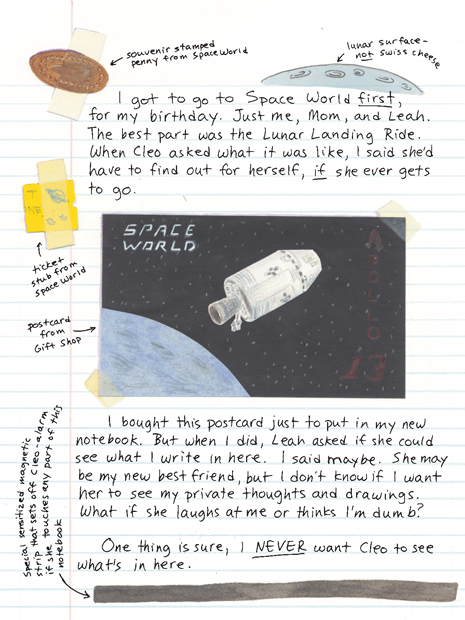 souvenir stamped
penny from Space World
lunar surface-
not swiss cheese
I got to go to Space World first,
for my birthday. Just me, Mom, and Leah.
The best part was the Lunar Landing Ride.
When Cleo asked what it was like, I said she'd
have to find out for herself, if she ever gets
to go.
T
NE
ticket
stub from
Space World
SPACE
WORLD
APOLLO
13
postcard
from
Gift Shop
I bought this postcard just to put in my new
notebook. But when I did, Leah asked if she could
see what I write in here. I said maybe. She may
be my new best friend, but I don't know if I want
her to see my private thoughts and drawings.
What if she laughs at me or thinks I'm dumb?
One thing is sure, I NEVER want Cleo to see
what's in here.
Special sensitized magnetic
strip that sets off Cleo-alarm
if she touches any part of this
notebook